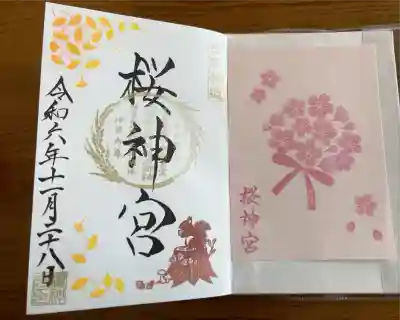 桜神宮
令和六年十一月二十八日
桜神宮